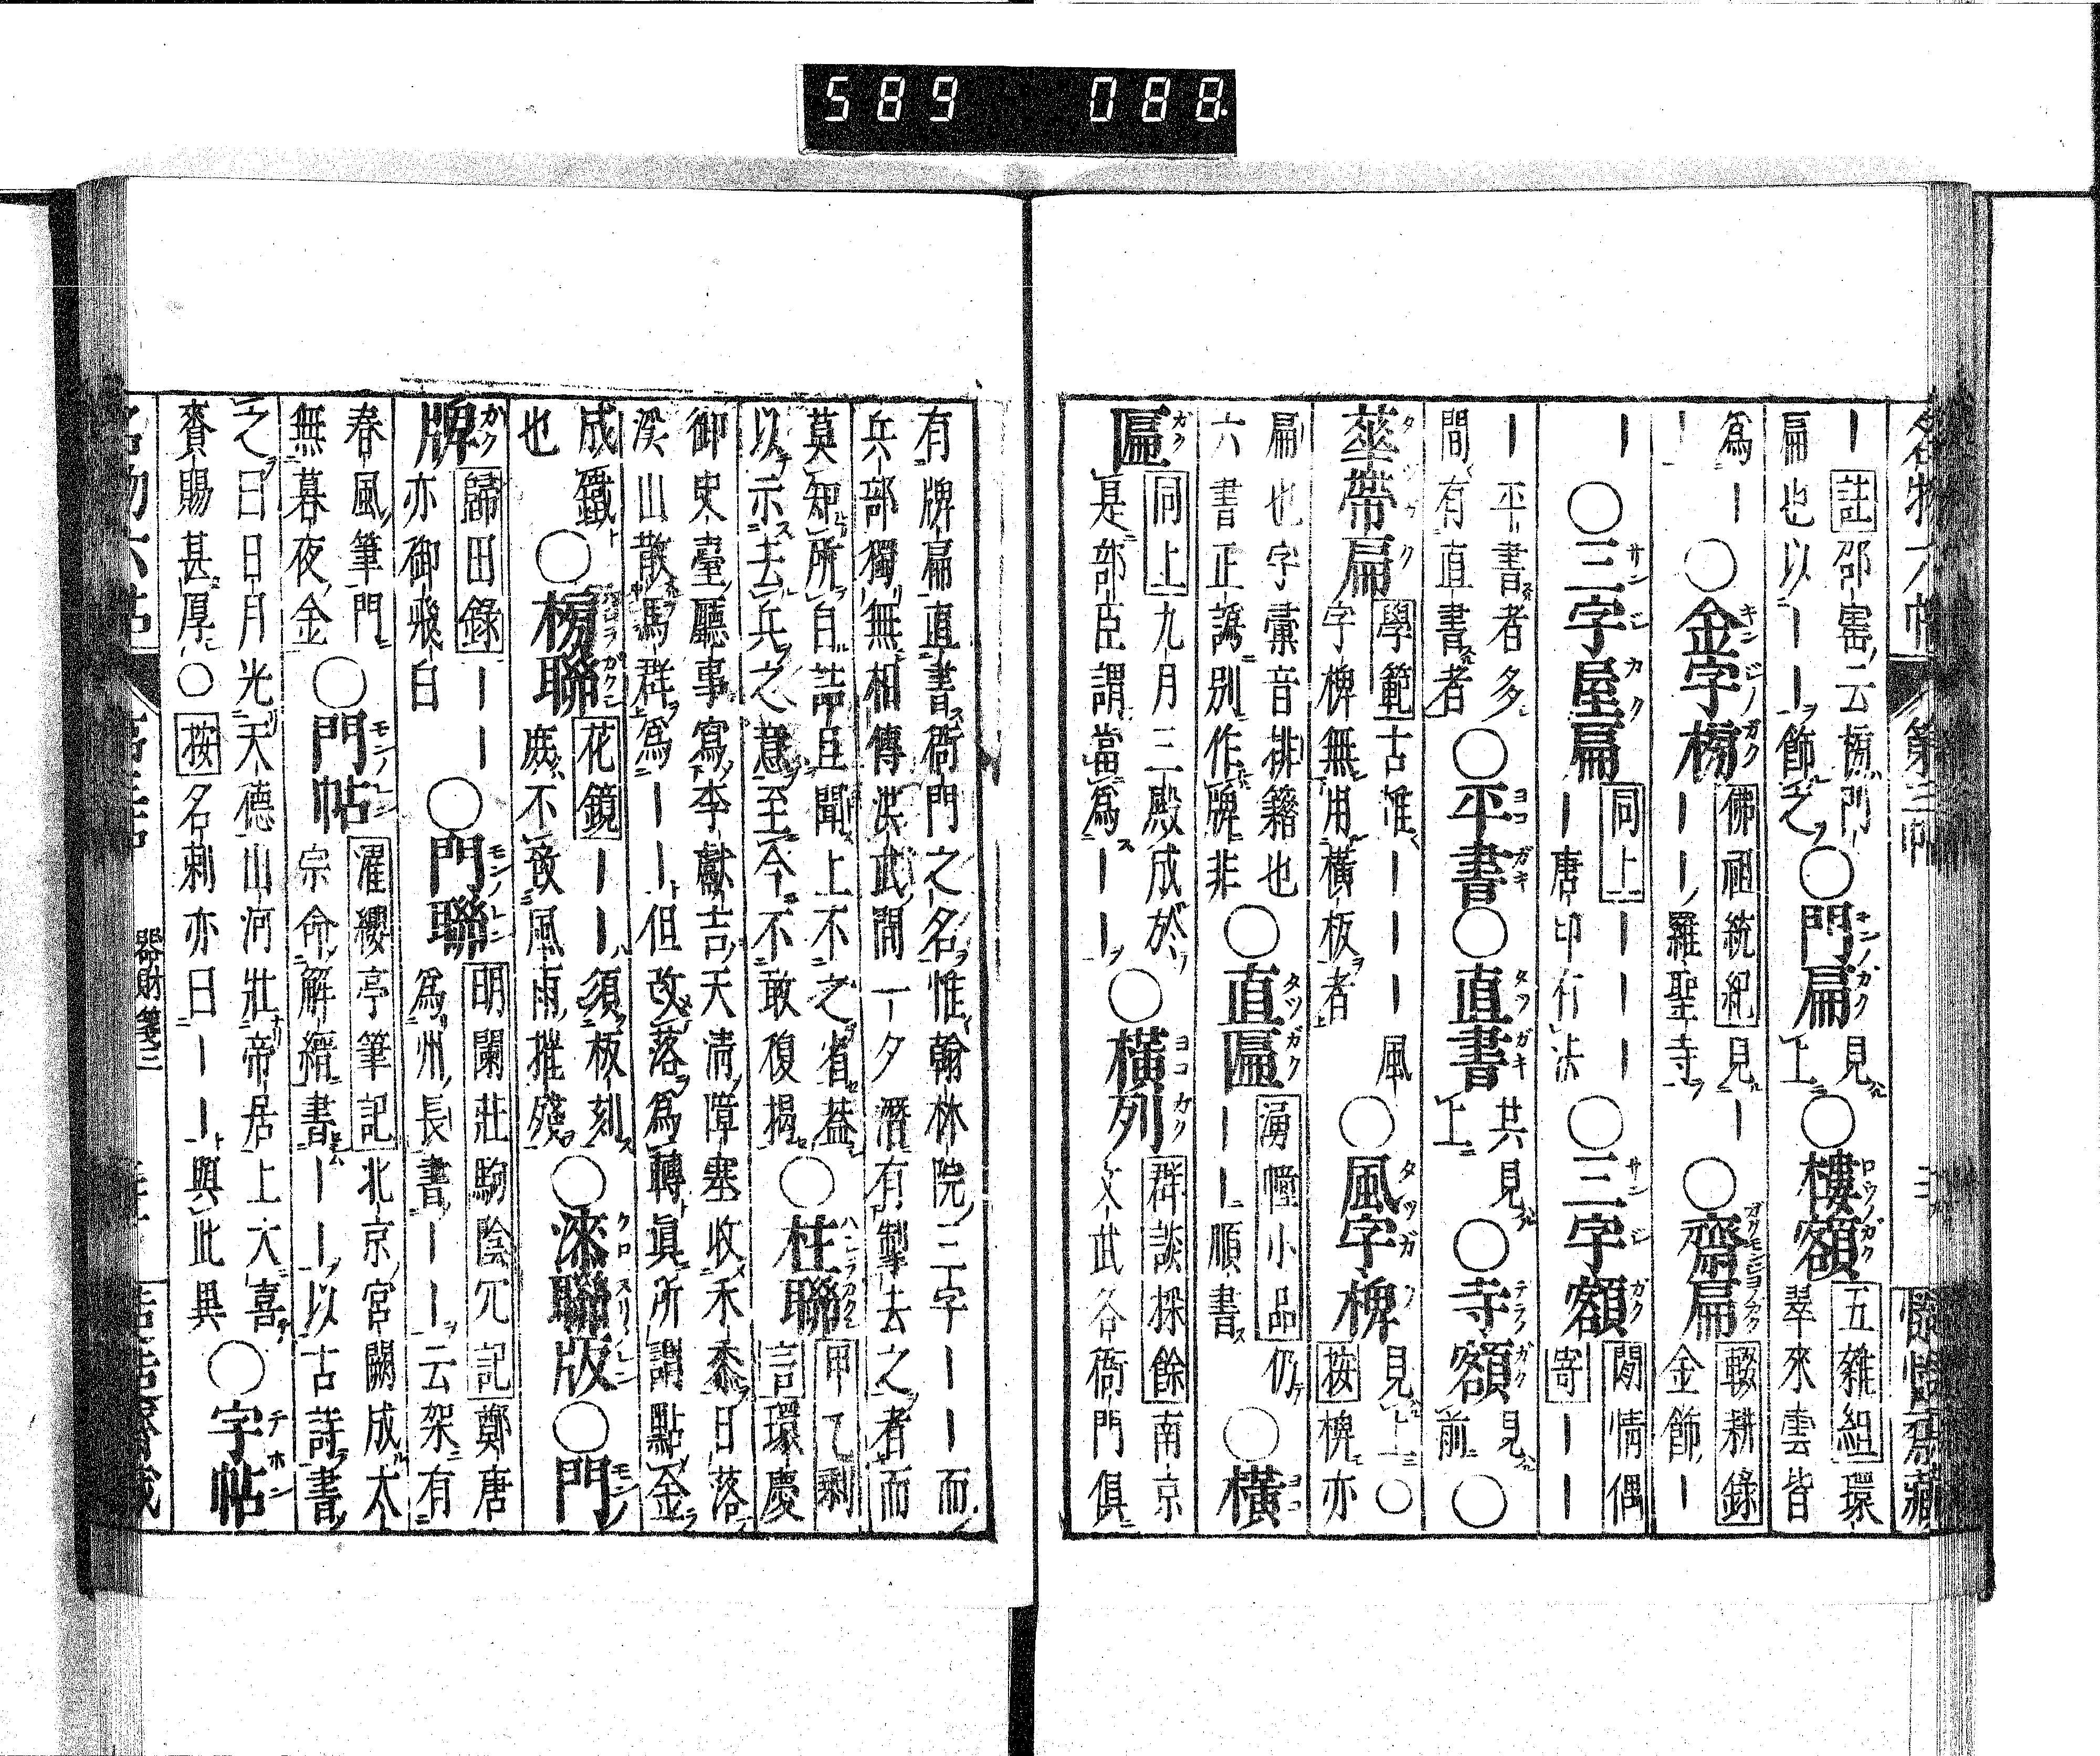 589 088
名物六帖 第三帖
｜註邵窰云榜門
扁也以｜｜飾之
○門扁見上
○樓額五雜組環
翠來雲皆
爲｜
｜｜
○金字榜佛祖統紀見｜
｜｜羅聖寺
○齋扁輟耕錄
金飾｜
｜
○三字屋扁同上｜｜｜｜
｜唐印行法
○三字額閒情偶
寄｜｜
｜平書者多
間有直書者
○平書○直書共見上
○寺額見前○
華帶扁學範古惟｜｜｜風
字椑無用橫板者
○風字椑見上○
按椑亦
扁也字彙音排籍也
六書正譌別作牌非
○直匾湧幢小品仍
｜｜順書
○橫
匾同上九月三殿成於
是部臣謂當爲｜｜
○橫列群談採餘南京
文武各衙門俱
有牌扁直書衙門之名惟翰林院三字｜｜而
兵部獨無相傳洪武間一夕潛有掣去之者而
莫知所自詰且聞上不之省蓋
以示去兵之意至今不敢復揭
○柱聯甲乙剩
言環慶
御史臺廳事寫李獻吉天清障塞收禾黍日落
溪山散馬群爲｜｜但改落爲轉眞所謂點金
成鐵
也
○榜聯花鏡｜｜須板刻
庶不致風雨摧殘
○漆聯版○門
牌歸田錄｜｜
亦御飛白
○門聯明蘭莊駒陰冗記鄭唐
爲州長書｜｜云架有
春風筆門
無暮夜金
○門帖濯纓亭筆記北京宮闕成太
宗命解縉書｜｜以古詩書
之曰日月光天德山河壯帝居上大喜
賚賜甚厚○按名刺亦曰｜｜與此異
○字帖
器財箋三